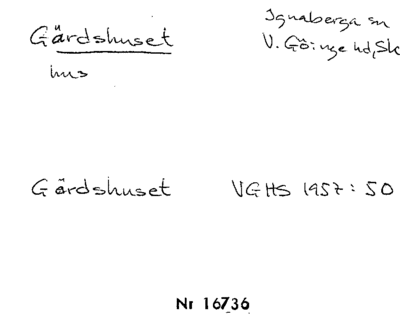 Gärdshuset
Ignaberga sn
V. Göinge hd, Sk
hus
Gärdshuset VGHS 1957: 50
Nr 16736